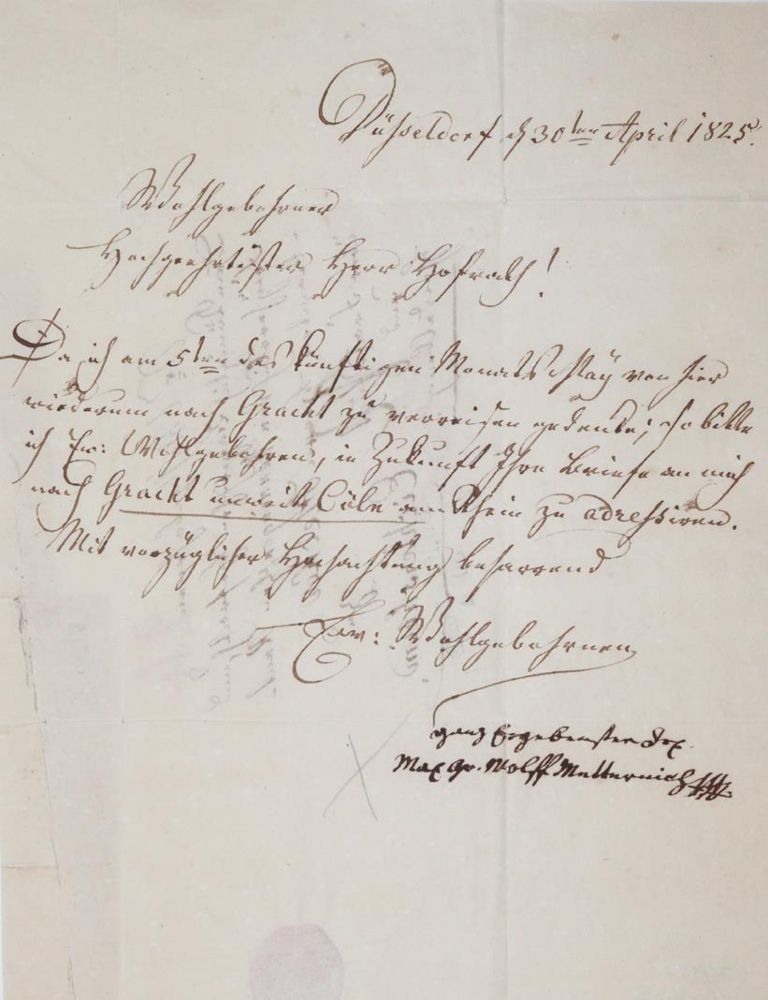 Düsseldorf d 30ten April 1825.
Wohlgebohrner
Hochgeehrtester Herr Hofrath!
Da ich am 5ten des künftigen Monats May von hier
wiederum nach Gracht zu verreisen gedenke; so bitte
ich Ew: Wohlgebohren, in Zukunft Ihre Briefe an mich
nach Gracht unweit Cöln am Rhein zu adressiren.
Mit vorzüglicher Hochachtung beharrend
Ew: Wohlgebohrnen
ganz Ergebenster
Max Gr. Wolff Metternich